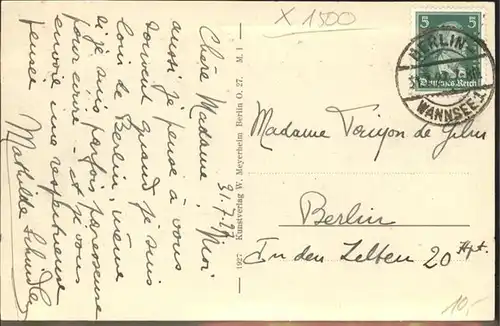 31.7.27
Chère Madame! Moi
aussi je pense à vous
souvent quand je suis
loin de Berlin, même
si je suis parfois paresseuse
pour écrire – et je vous
envoie une respectueuse
pensée
Mathilde
1927 Kunstverlag W. Meyerheim Berlin O. 27. M. 1
X 1500
5 5
Deutsches Reich
BERLIN-
WANNSEE
Madame de
Berlin
In den Zelten 20 Apt.
10,-